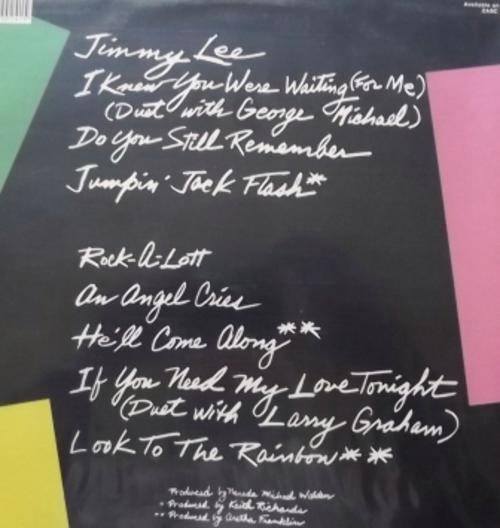 Available on
Jimmy Lee
I Knew You Were Waiting (For Me)
(Duet with George Michael)
Do You Still Remember
Jumpin' Jack Flash*
Rock-A-Lott
An Angel Cries
He'll Come Along**
If You Need My Love Tonight
(Duet with Larry Graham)
Look To The Rainbow**
Produced by Narada Michael Walden
* Produced by Keith Richards
** Produced by Aretha Franklin